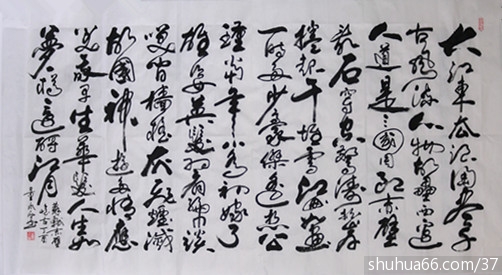 大江東去浪淘盡千
古風流人物故壘西邊
人道是三國周郎赤壁
亂石穿空驚濤拍岸
捲起千堆雪江山如畫
一時多少豪傑遙想公
瑾當年小喬初嫁了
雄姿英發羽扇綸巾談
笑間檣櫓灰飛煙滅
故國神遊多情應
笑我早生華髮人生如
夢一樽還酹江月
shuhua66.com/37